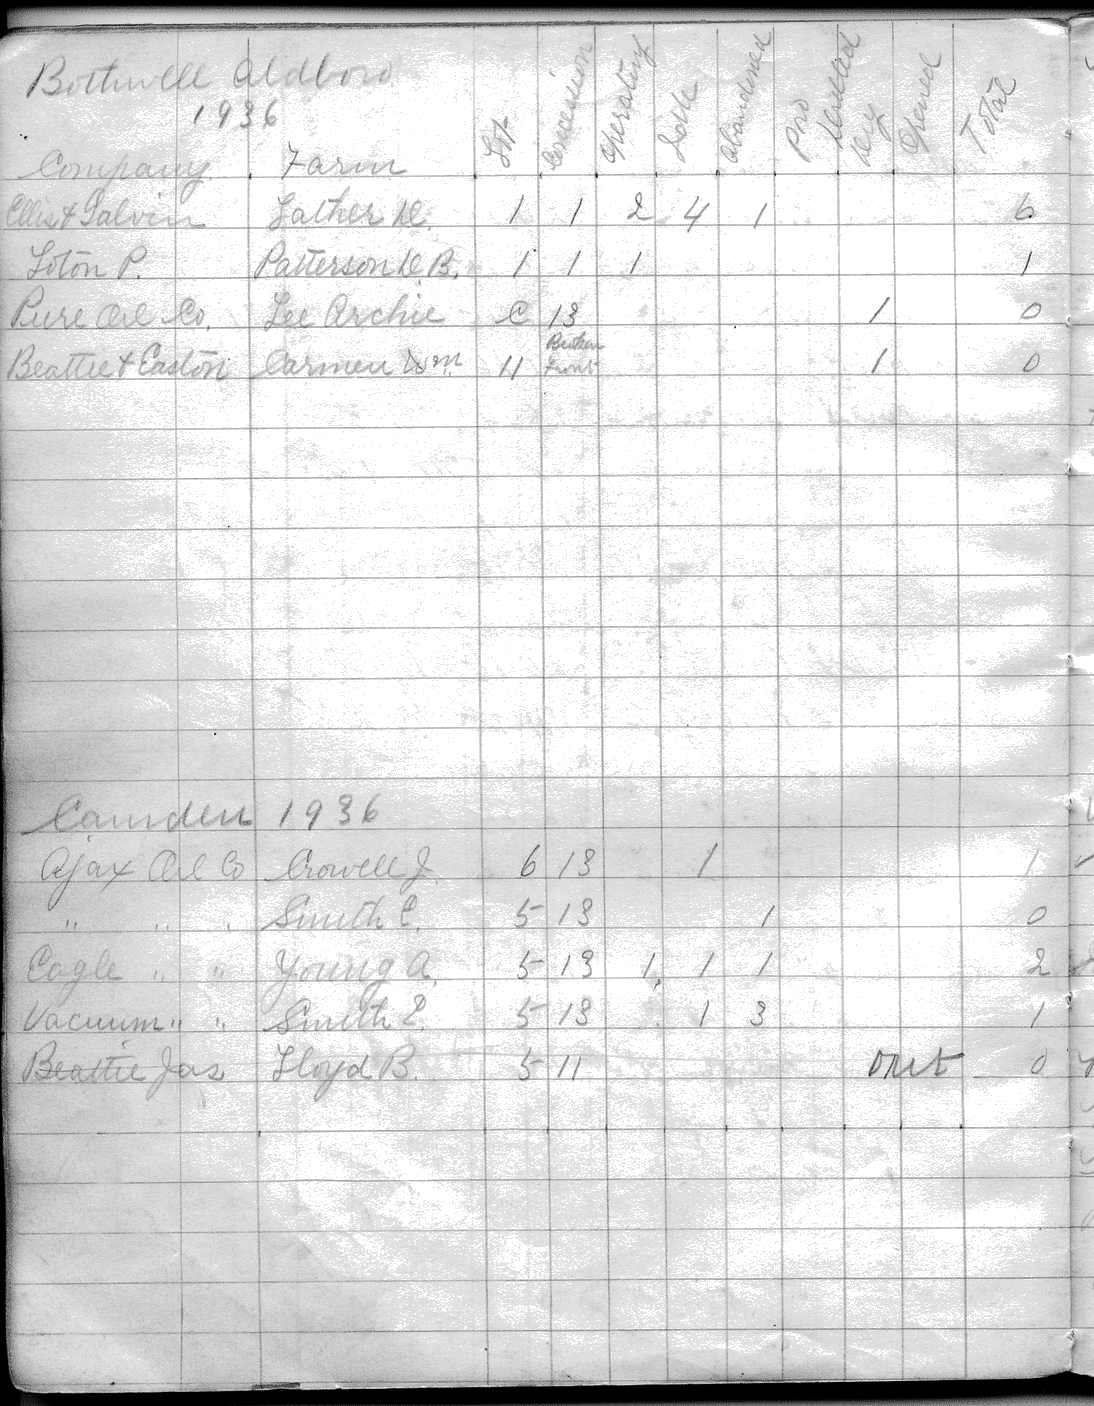 Bothwell Aldboro
1936
Company Farm Lot Concession Operating Idle Abandoned Pro Drilled Dry Opened Total
Ellis & Galvin Lather D. 1 1 2 4 1 6
Loton P. Patterson D B. 1 1 1 1
Pure Oil Co. Lee Archie C 13 1 0
Beattie & Easton Carmen Wm 11 Broken Front 1 0
Camden 1936
Ajax Oil Co Crowell J. 6 13 1 1
" " " Smith E. 5 13 1 0
Eagle " " Young A. 5 13 1 1 1 2
Vacuum " " Smith E. 5 13 1 3 1
Beattie Jas Lloyd B. 5 11 0